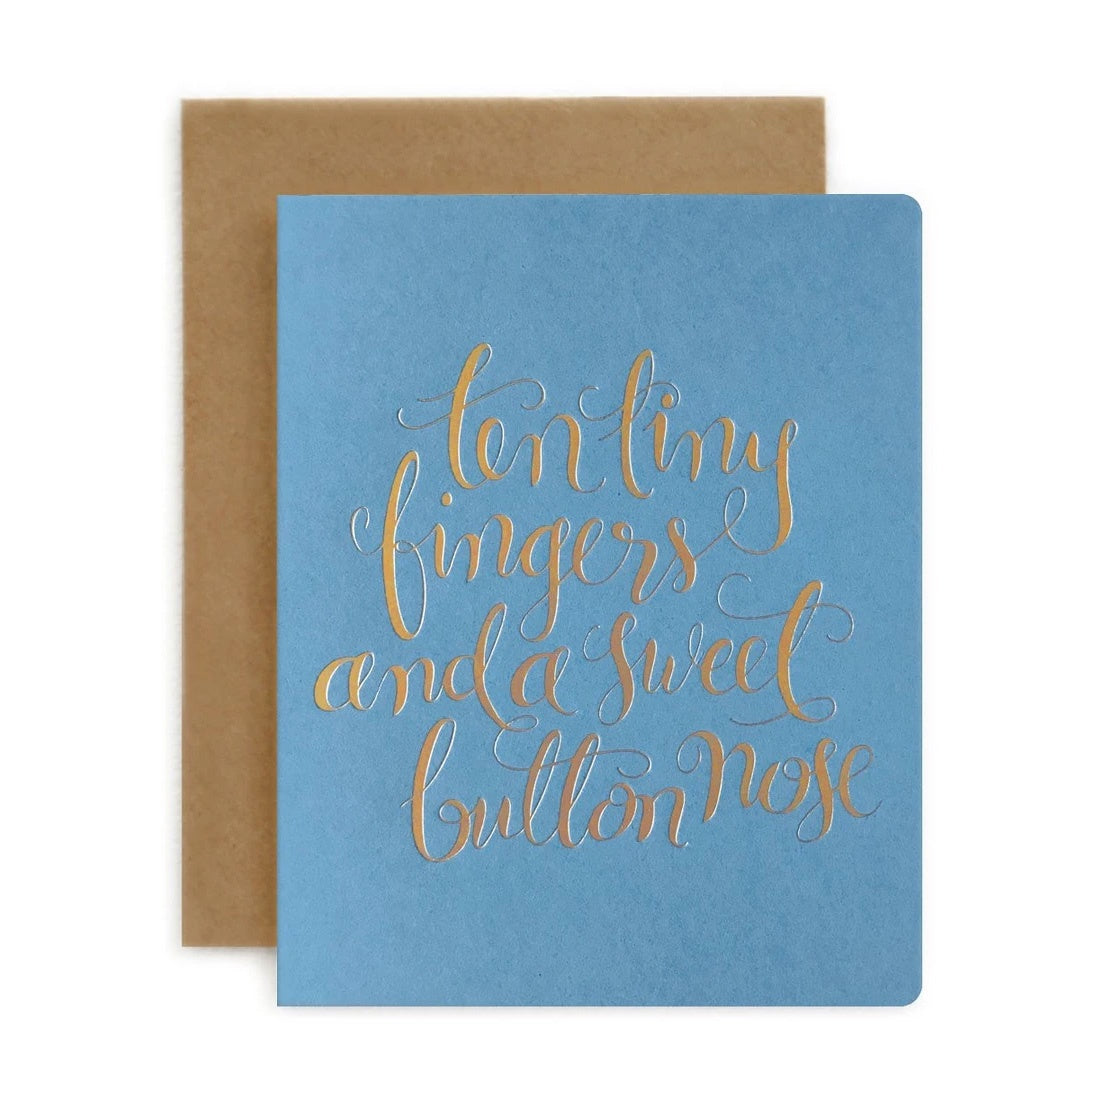 ten tiny
fingers
and a sweet
button nose